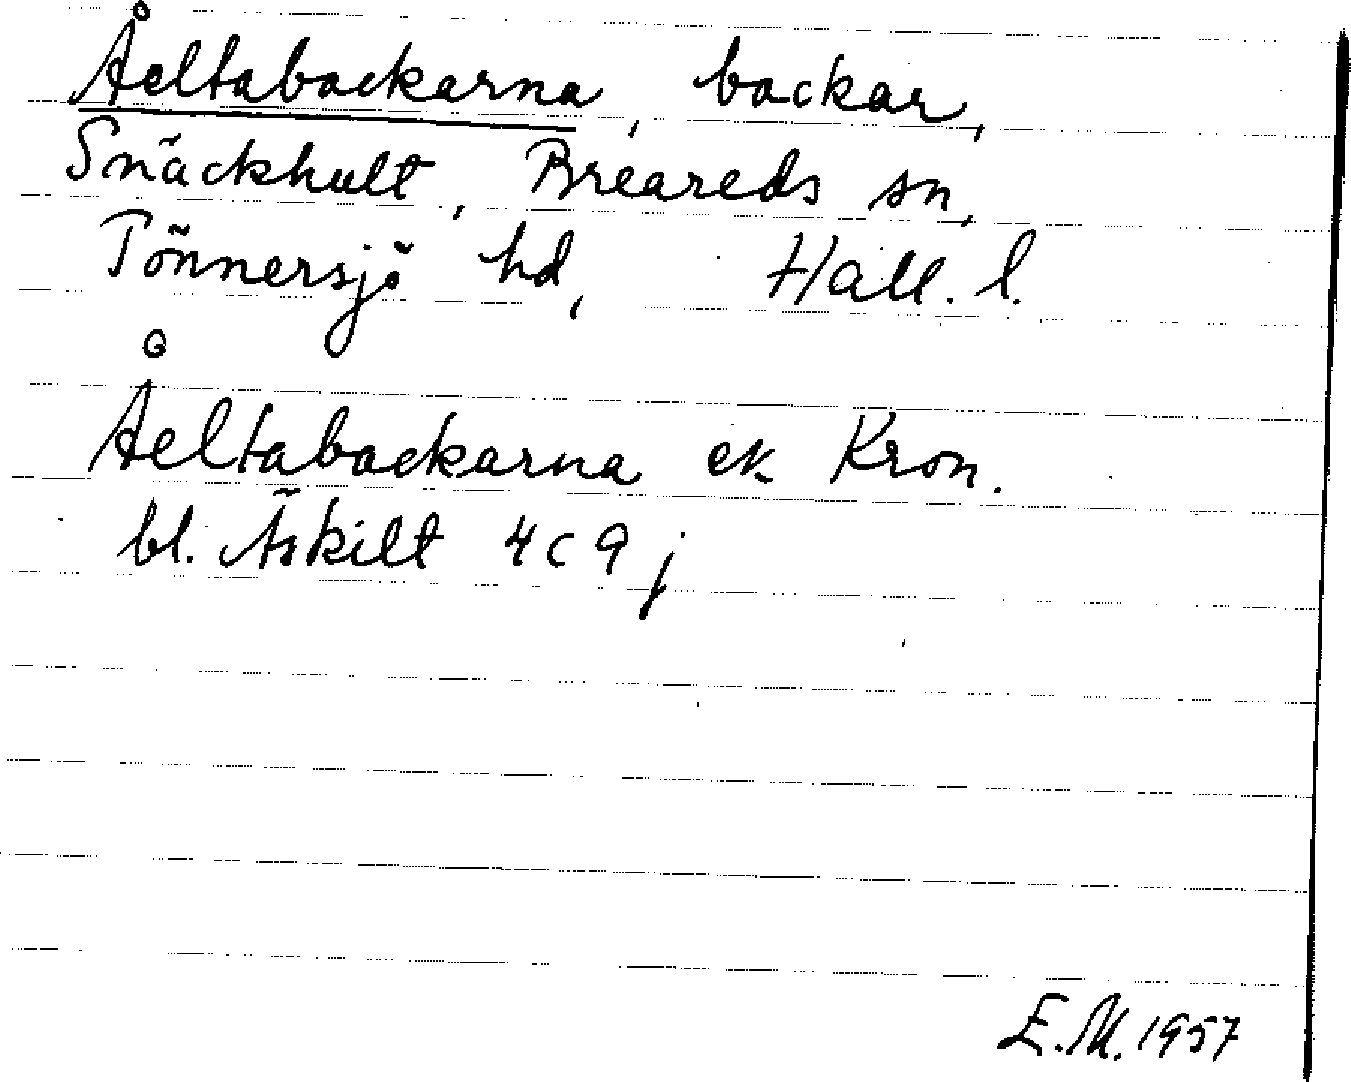 Åeltabackarna, backar,
Snäckhult, Breareds sn,
Tönnersjö hd, Hall. l.
Åeltabackarna ek Kron.
bl. Äskilt 4 C 9 j
E.M. 1957